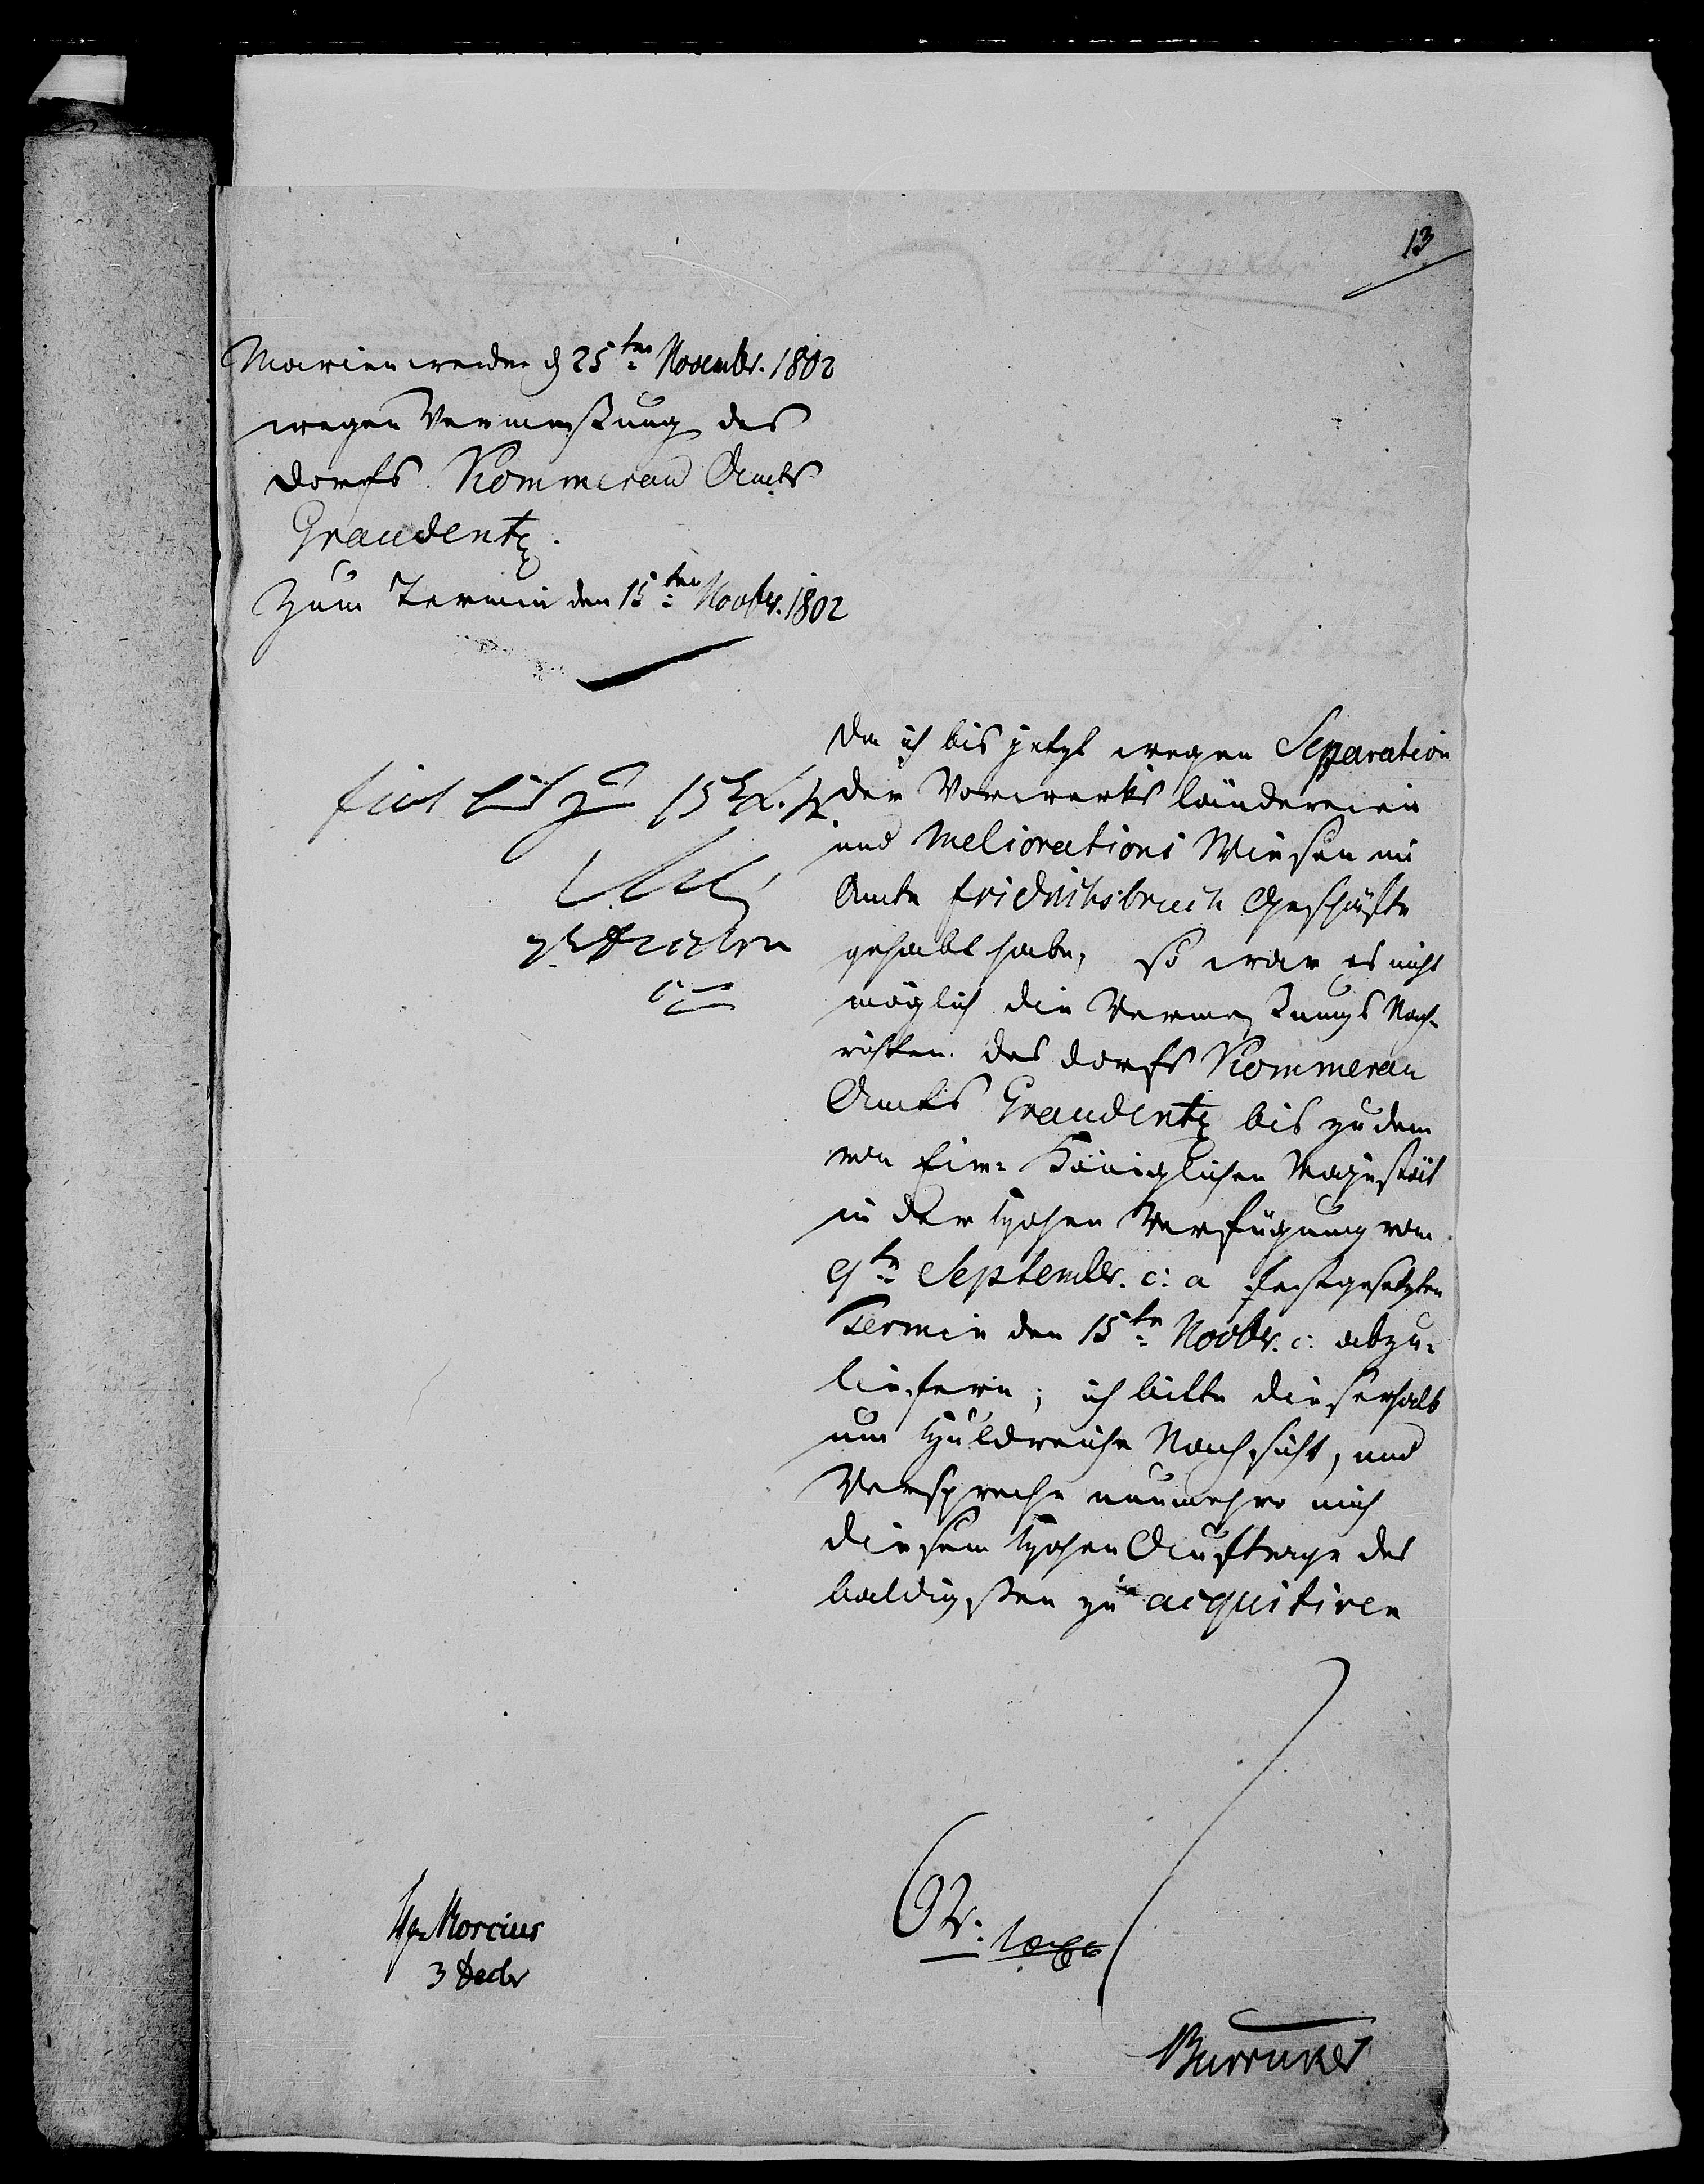 13
Marienwerder d 25ten Novembr. 1802
wegen Vermeßung des
dorfs Kommerau Amts
Graudentz.
Zum Termin den 15ten Novbr. 1802
da ich bis jetzt wegen Separation
der Vorwerks länderreien
und Meliorations Wiesen im
Amte Fridrichsbruch Geschäfte
gehabt habe, so war es nicht
möglich die Vermeßungs Nach-
richten des dorfs Kommerau
Amts Graudentz bis zu dem
von Eur: Königlichen Majestät
in der Hohen Verfügung vom
9tn September. c: a festgesetzten
Termin den 15tn Novbr. c: abzu-
liefern; ich bitte dieserhalb
um Huldreiche Nachsicht, und
Verspreche nunmehro mich
diesem Hohen Auftrage des
baldigsten zu acquitiren
H Morcius
3 Decbr
Burruker